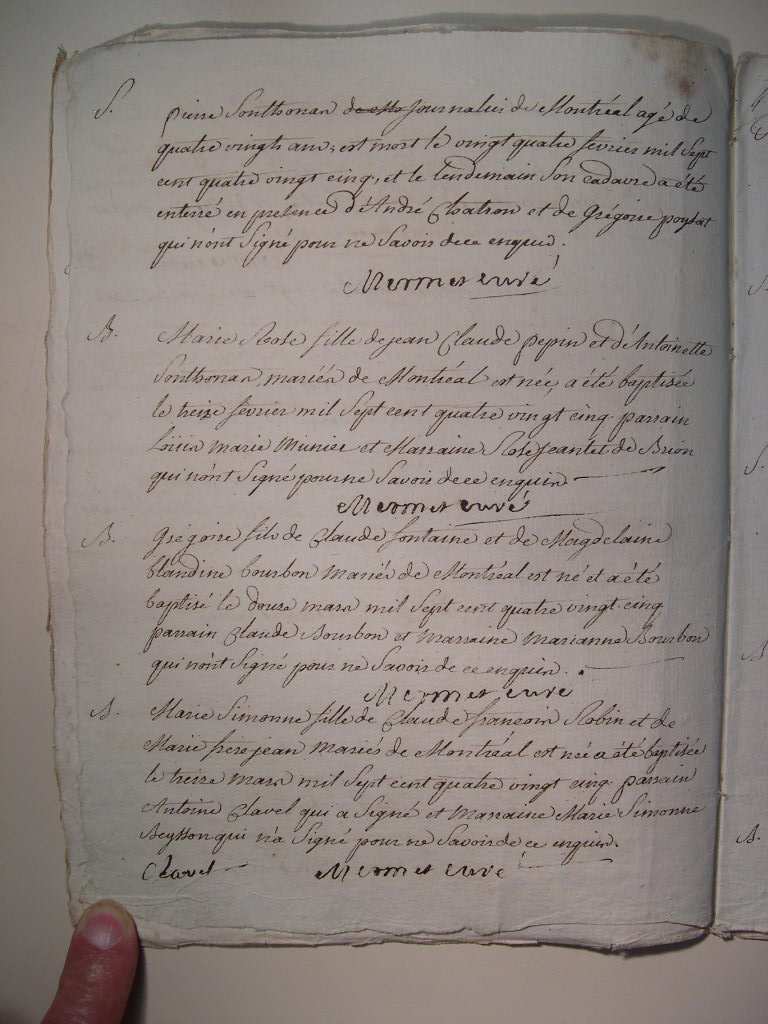 S. pierre Sonthonax de Mo journalier de Montréal agé de
quatre vingts ans, est mort le vingt quatre fevrier mil Sept
cent quatre vingt cinq, et le lendemain Son cadavre a été
enterré en presence d'André Chatron et de Grégoire
qui n'ont Signé pour ne Savoir de ce enquis.
Mermet curé
B. Marie Rose fille de jean Claude pepin et d'Antoinette
Sonthonax mariés de Montréal est née, a été baptisée
le treize fevrier mil Sept cent quatre vingt cinq parrain
Loüis marie Munier et Marraine Rose jeantet de Brion
qui n'ont Signé pour ne Savoir de ce enquis
Mermet curé
B. Grégoire fils de Claude fontaine et de Magdelaine
blandine bourbon mariés de Montréal est né et a été
baptisé le douze mars mil Sept cent quatre vingt cinq
parrain Claude Bourbon et marraine marianne Bourbon
qui n'ont Signé pour ne Savoir de ce enquis.
Mermet curé
B. Marie Simonne fille de Claude françois Robin et de
Marie frere jean mariés de Montréal est née a été baptisée
le treize mars mil Sept cent quatre vingt cinq parrain
Antoine Clavel qui a Signé et marraine Marie Simonne
Beysson qui n'a Signé pour ne Savoir de ce enquis.
Clavel Mermet curé